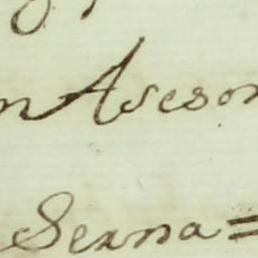 n Asesor
Serna =